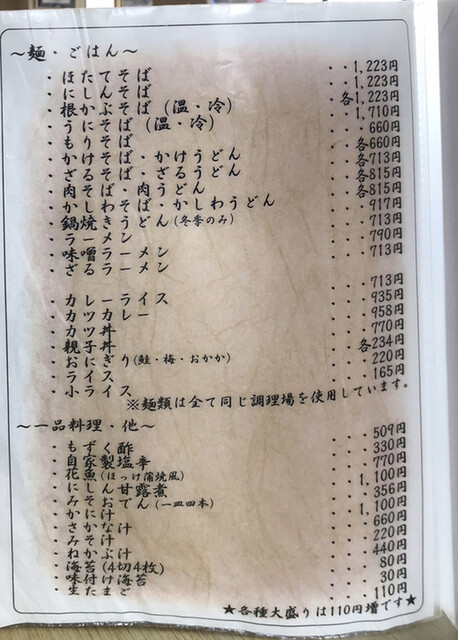 ～麺・ごはん～
・ほたてそば ・・1,223円
・にしんそば ・・1,223円
・根かぶそば（温・冷） 各1,223円
・うにそば（温・冷） ・・1,710円
・もりそば ・・・660円
・かけそば・かけうどん 各660円
・ざるそば・ざるうどん 各713円
・肉そば・肉うどん 各815円
・かしわそば・かしわうどん 各815円
・鍋焼きうどん（冬季のみ） ・・・917円
・ラーメン ・・・713円
・味噌ラーメン ・・・790円
・ざるラーメン ・・・713円
・カレーライス ・・・713円
・カツカレー ・・・935円
・カツ丼 ・・・958円
・親子丼 ・・・770円
・おにぎり（鮭・梅・おかか） 各234円
・ライス ・・・220円
・小ライス ・・・165円
※麺類は全て同じ調理場を使用しています。
～一品料理・他～
・もずく酢 ・・・509円
・自家製塩辛 ・・・330円
・花魚（ほっけ蒲焼風） ・・・770円
・にしん甘露煮 ・・1,100円
・みそおでん（一皿四本） ・・・356円
・かに汁 ・・1,100円
・さかな汁 ・・・660円
・みそ汁 ・・・220円
・ねかぶ汁 ・・・440円
・海苔（4切4枚） ・・・80円
・味付け海苔 ・・・30円
・生たまご ・・・110円
★各種大盛りは110円増です★